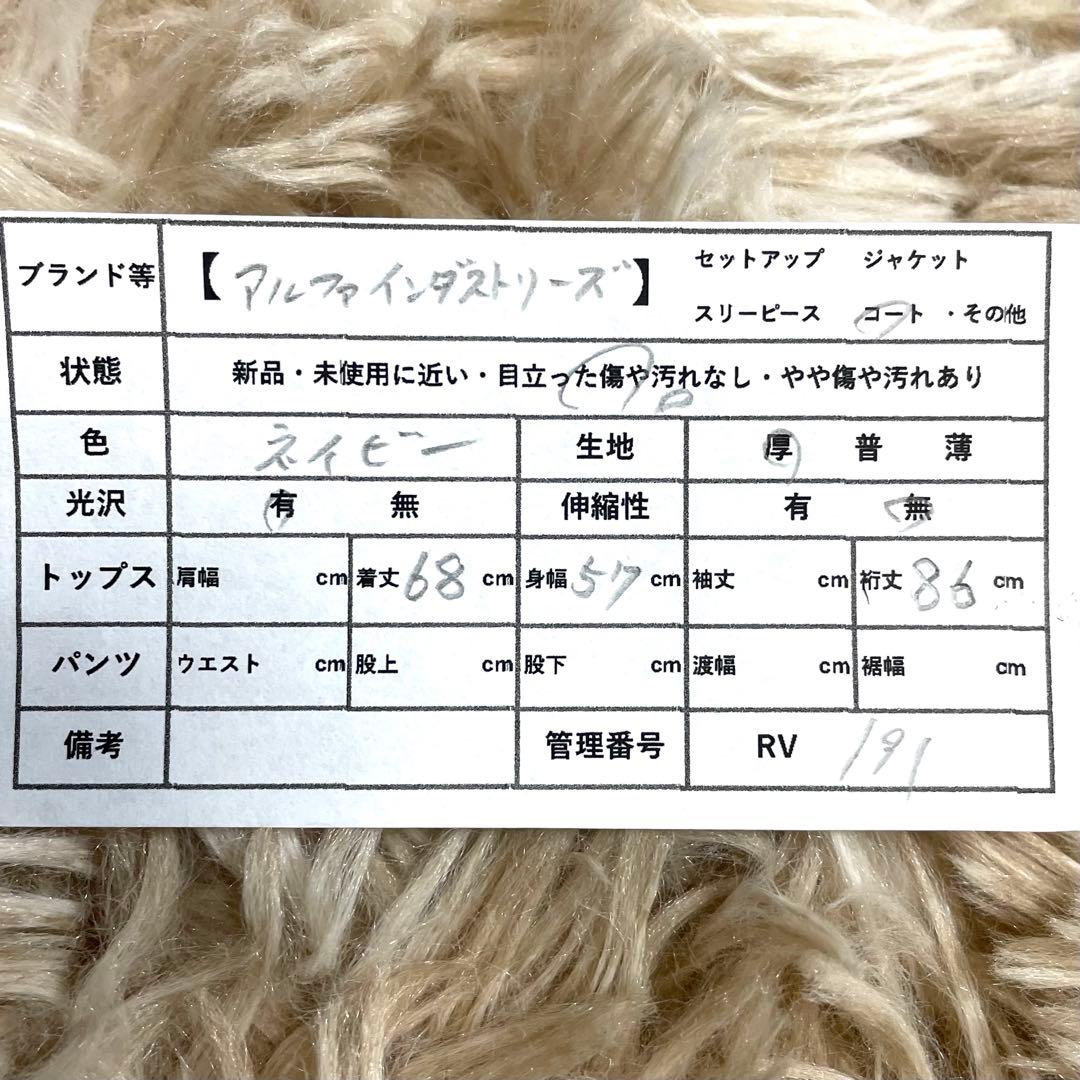 ブランド等 【アルファインダストリーズ】 セットアップ ジャケット
スリーピース コート ・その他
状態 新品・未使用に近い・目立った傷や汚れなし・やや傷や汚れあり
色 ネイビー 生地 厚 普 薄
光沢 有 無 伸縮性 有 無
トップス 肩幅 cm 着丈 68 cm 身幅 57 cm 袖丈 cm 裄丈 86 cm
パンツ ウエスト cm 股上 cm 股下 cm 渡幅 cm 裾幅 cm
備考 管理番号 RV 191